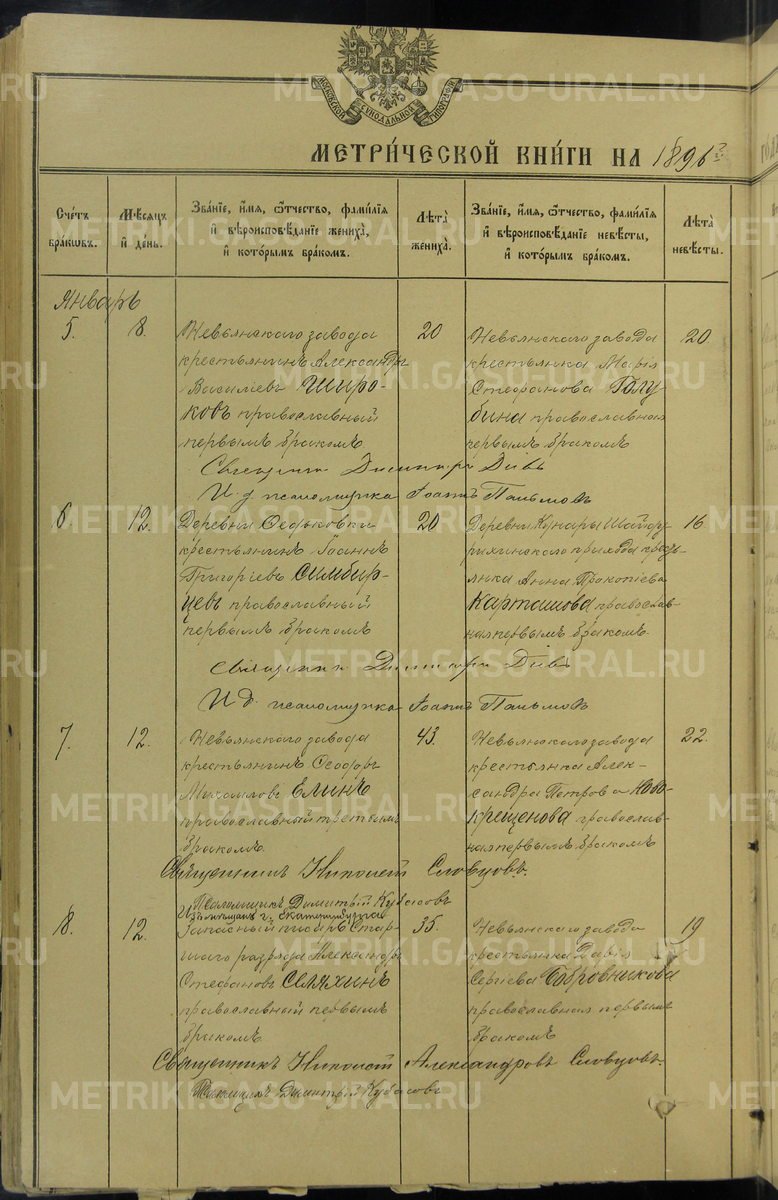 МОСКОВСКОЙ СѴНОДАЛЬНОЙ ТИПОГРАФІИ
МЕТРИ́ЧЕСКОЙ КНИ́ГИ НА 1896
Сче́тъ бра́кѡвъ.
Мѣ́сяцъ и҆ де́нь.
Зва́ніе, и҆́мя, ѻ҆́тчество, фами́лія и҆ вѣроисповѣ́даніе жениха̀, и҆ кото́рымъ бра́комъ.
Лѣ́та жениха̀.
Зва́ніе, и҆́мя, ѻ҆́тчество, фами́лія и҆ вѣроисповѣ́даніе невѣ́сты, и҆ кото́рымъ бра́комъ.
Лѣ́та невѣ́сты.
Январь
5. 8.
Невьянскаго завода
крестьянинъ Александръ
Васильевъ Широ-
ковъ православный
первымъ бракомъ
20
Невьянскаго завода
крестьянка Марія
Стефанова Голу-
бина православная
первымъ бракомъ
20
Священник Димитрій Дивъ
И д псаломщика Іоаннъ Пальмовъ
6. 12.
Деревни Федьковки
крестьянинъ Іоаннъ
Григоріевъ Симбир-
цевъ православный
первымъ бракомъ
20
Деревни Кунары Шайду-
рихинскаго прихода кресть-
янка Анна Прокопіева
Карташова православ-
ная первымъ бракомъ
16
Священник Димитрій Дивъ
И д. псаломщика Іоаннъ Пальмовъ
7. 12.
Невьянскаго завода
крестьянинъ Ѳеодоръ
Михаиловъ Елинъ
православный третьимъ
бракомъ
43.
Невьянскаго завода
крестьянка Алек-
сандра Петрова Ново-
крещенова православ-
ная первымъ бракомъ
22.
Священникъ Николай Словцовъ.
Псаломщикъ Димитрій Кубасовъ
8. 12.
Изъ мѣщанъ г. Екатеринбурга
Запасный писарь Стар-
шаго разряда Александръ
Стефановъ Селяхинъ
православный первымъ
бракомъ
35.
Невьянскаго завода
крестьянка Дарія
Сергіева Бобровникова
православная первымъ
бракомъ
19
Священникъ Николай Александровъ Словцовъ.
Псаломщикъ Димитрій Кубасовъ
METRIKI.GASO-URAL.RU